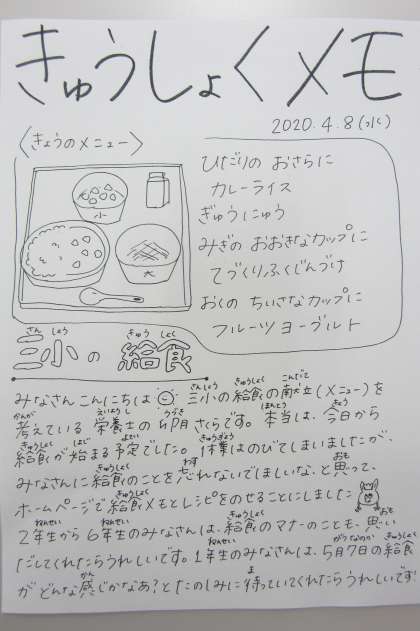 きゅうしょくメモ
2020.4.8(水)
〈きょうのメニュー〉
ひだりの おさらに
カレーライス
ぎゅうにゅう
みぎの おおきなカップに
てづくりふくじんづけ
おくの ちいさなカップに
フルーツヨーグルト
小
大
三小の給食
みなさんこんにちは 三小の給食の献立(メニュー)を
考えている 栄養士の 卯月 さくらです。本当は、今日から
給食が始まる予定でした。休業はのびてしまいましたが、
みなさんに給食のことを忘れないでほしいな、と思って、
ホームページで給食メモとレシピをのせることにしました
2年生から6年生のみなさんは、給食のマナーのことも、思い
だしてくれたらうれしいです。1年生のみなさんは、5月7日の給食
がどんな感じかなあ?とたのしみに待っていてくれたらうれしいです!